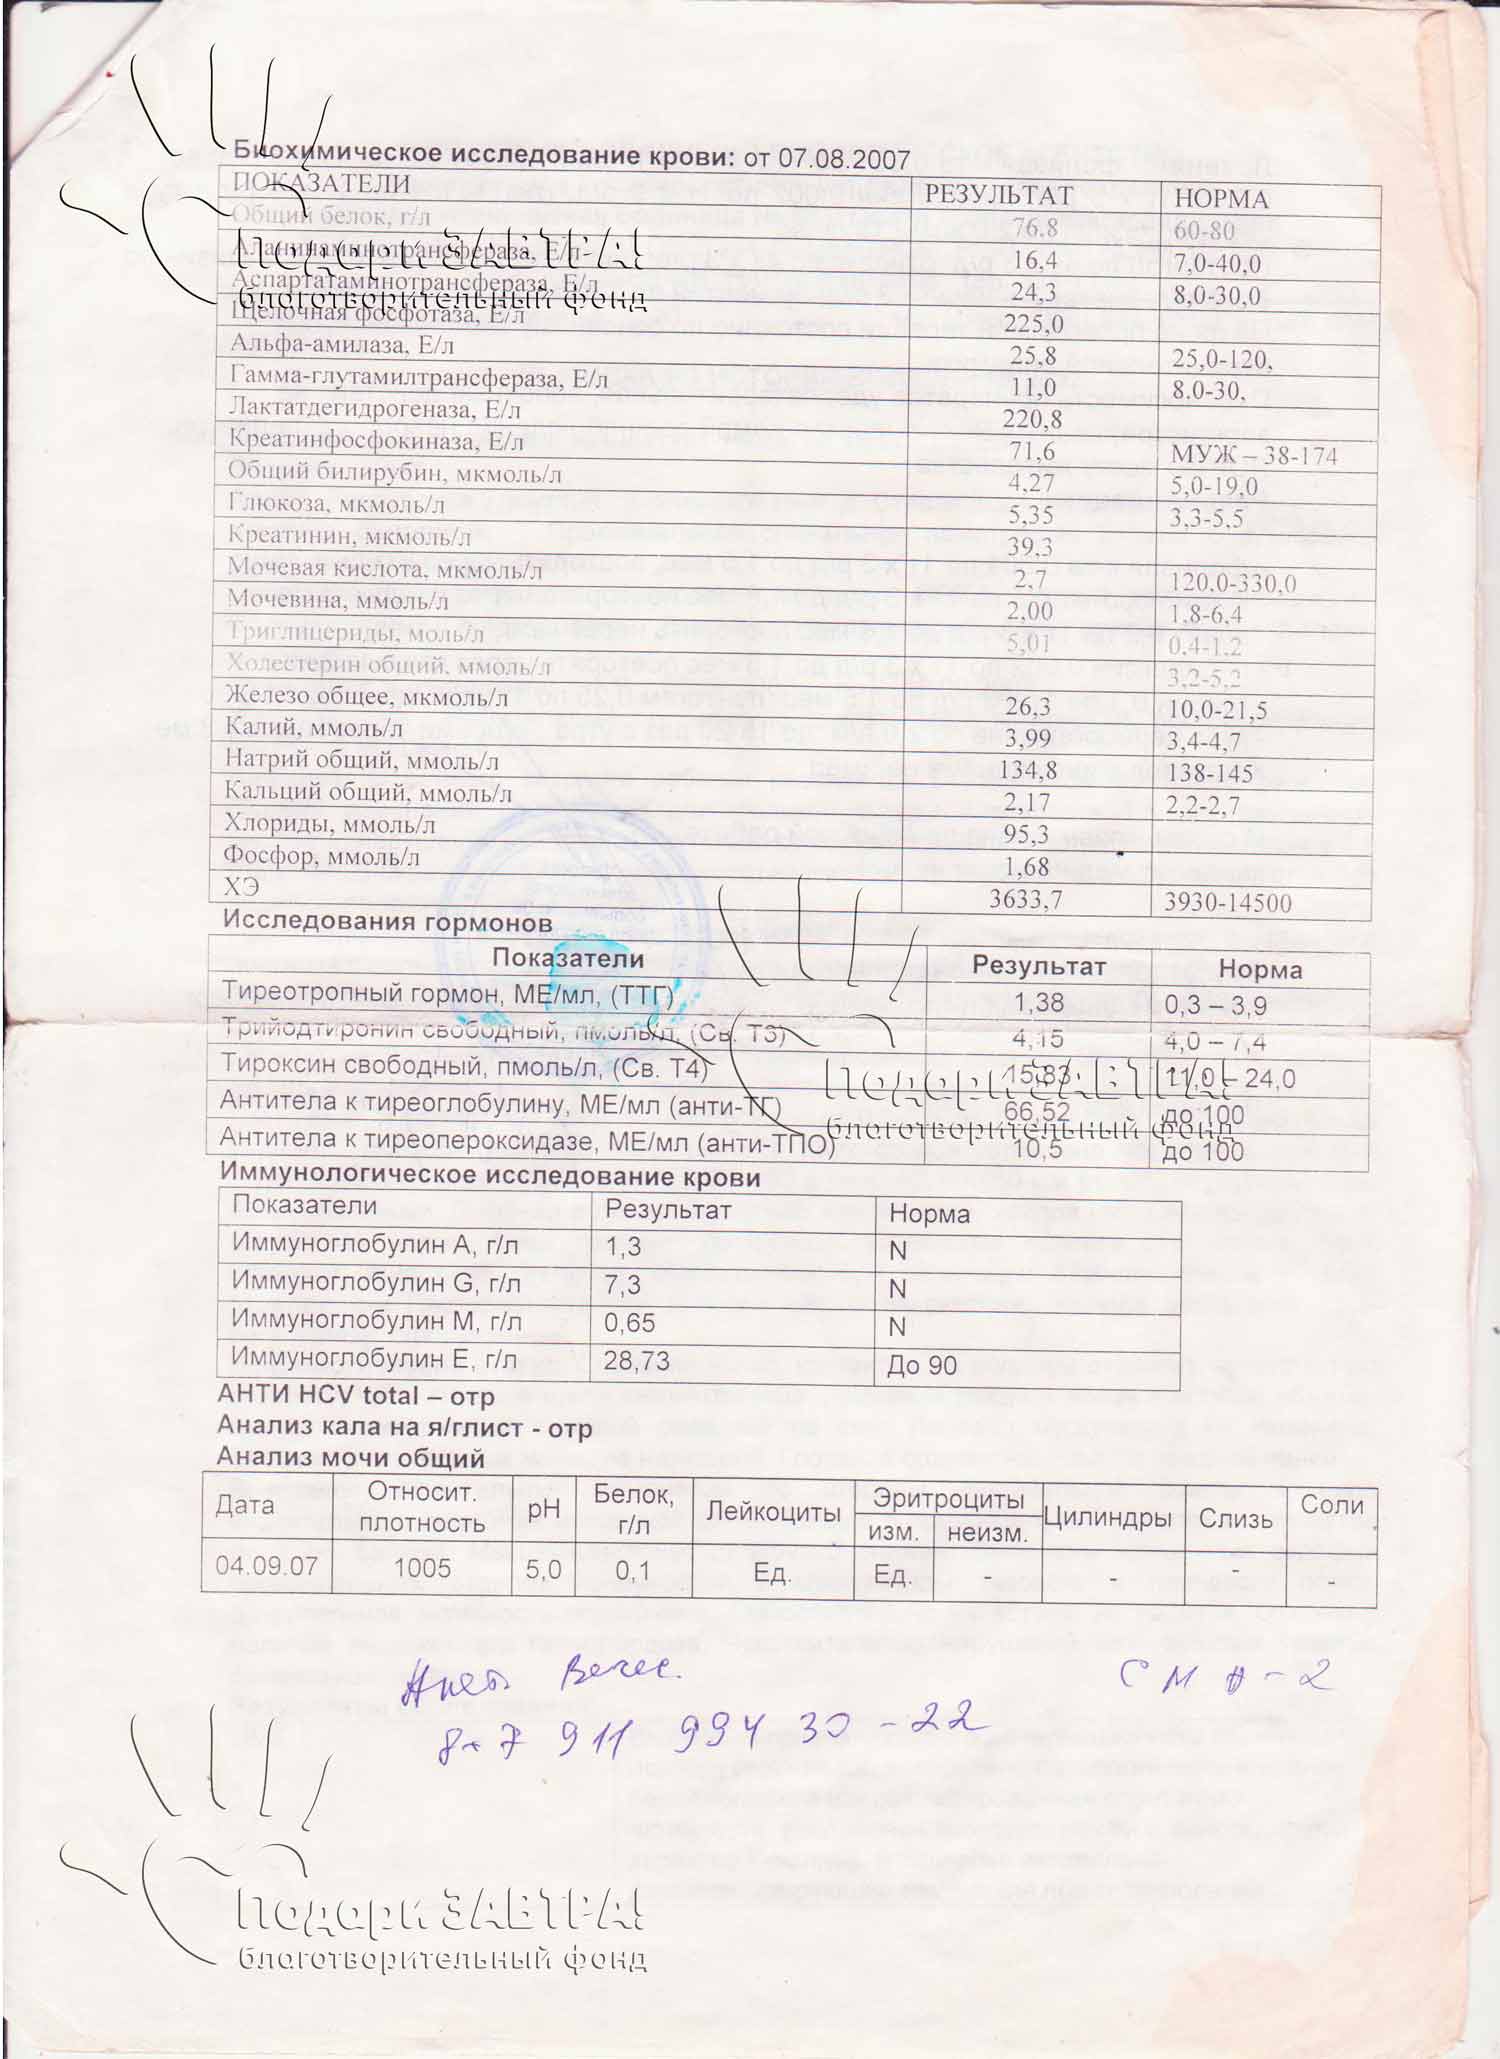 Биохимическое исследование крови: от 07.08.2007
ПОКАЗАТЕЛИ РЕЗУЛЬТАТ НОРМА
Общий белок, г/л 76.8 60-80
Аланинаминотрансфераза, Е/л 16,4 7,0-40,0
Подари ЗАВТРА!
Аспартатаминотрансфераза, Е/л 24,3 8,0-30,0
благотворительный фонд
Щелочная фосфотаза, Е/л 225,0
Альфа-амилаза, Е/л 25,8 25,0-120,
Гамма-глутамилтрансфераза, Е/л 11,0 8.0-30,
Лактатдегидрогеназа, Е/л 220,8
Креатинфосфокиназа, Е/л 71,6 МУЖ – 38-174
Общий билирубин, мкмоль/л 4,27 5,0-19,0
Глюкоза, мкмоль/л 5,35 3,3-5,5
Креатинин, мкмоль/л 39,3
Мочевая кислота, мкмоль/л 2,7 120,0-330,0
Мочевина, ммоль/л 2,00 1,8-6,4
Триглицериды, моль/л 5,01 0,4-1,2
Холестерин общий, ммоль/л 3,2-5,2
Железо общее, мкмоль/л 26,3 10,0-21,5
Калий, ммоль/л 3,99 3,4-4,7
Натрий общий, ммоль/л 134,8 138-145
Кальций общий, ммоль/л 2,17 2,2-2,7
Хлориды, ммоль/л 95,3
Фосфор, ммоль/л 1,68
ХЭ 3633,7 3930-14500
Исследования гормонов
Показатели Результат Норма
Тиреотропный гормон, МЕ/мл, (ТТГ) 1,38 0,3 – 3,9
Трийодтиронин свободный, пмоль/л, (Св. Т3) 4,15 4,0 – 7,4
Тироксин свободный, пмоль/л, (Св. Т4) 15,83 11,0 – 24,0
Подари ЗАВТРА!
Антитела к тиреоглобулину, МЕ/мл (анти-ТГ) 66,52 до 100
благотворительный фонд
Антитела к тиреопероксидазе, МЕ/мл (анти-ТПО) 10,5 до 100
Иммунологическое исследование крови
Показатели Результат Норма
Иммуноглобулин А, г/л 1,3 N
Иммуноглобулин G, г/л 7,3 N
Иммуноглобулин М, г/л 0,65 N
Иммуноглобулин Е, г/л 28,73 До 90
АНТИ HCV total – отр
Анализ кала на я/глист - отр
Анализ мочи общий
Дата Относит. плотность pH Белок, г/л Лейкоциты Эритроциты Цилиндры Слизь Соли
изм. неизм.
04.09.07 1005 5,0 0,1 Ед. Ед. - - - -
8+7 911 994 30-22
Подари ЗАВТРА!
благотворительный фонд